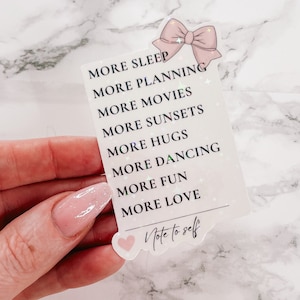 MORE SLEEP
MORE PLANNING
MORE MOVIES
MORE SUNSETS
MORE HUGS
MORE DANCING
MORE FUN
MORE LOVE
Note to self